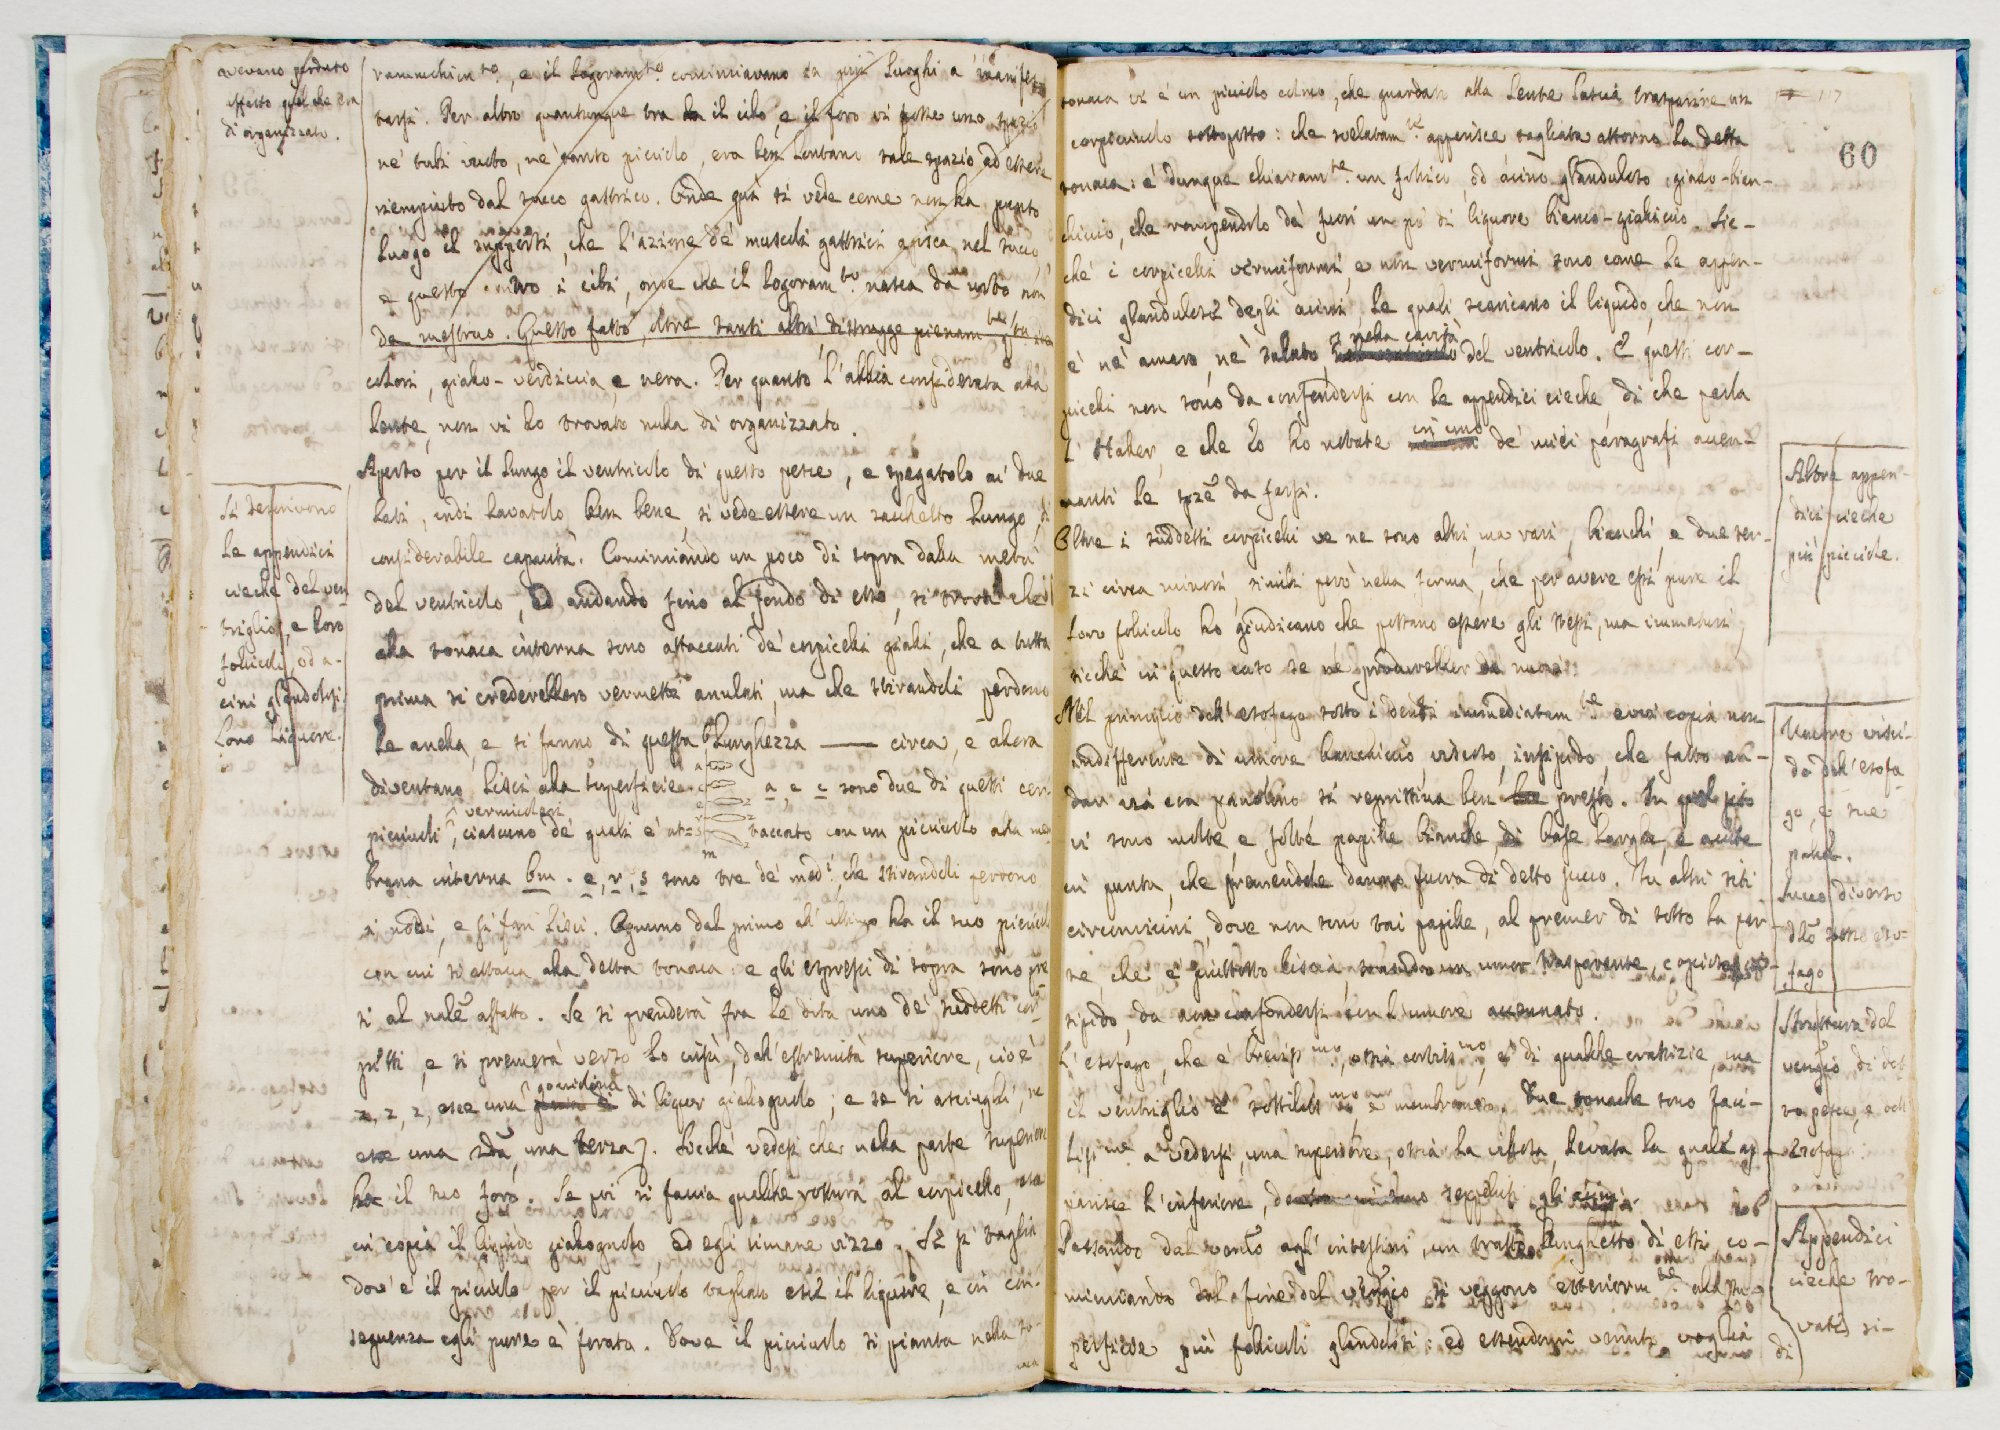 avevano perduto
affatto quel che era
di organizzato.
rammolim.to, e il logoram.to cominciavano in più luoghi a manifes-
tarsi. Per altro quantunque tra il cibo, e il foro vi fosse uno spazio
nè tutti vuoto, nè tanto picciolo, era ben lontano tale spazio ad essere
riempiuto dal succo gastrico. Onde quì si vede come non ha punto
luogo il supporsi, che l'azione de' muscoli gastrici agisca nel succo,
e questo i cibi, onde che il logoram.to nasca da urto non
da mestruo. Questo fatto, oltre tanti altri, distrugge pienam.te
colori, giallo-verdiccia, e nera. Per quanto l'abbia considerata alla
lente, non vi ho trovato nulla di organizzato.
Aperto per il lungo il ventricolo di questo pesce, e spiegatolo ai due
lati, indi lavatolo ben bene, si vede essere un sacchetto lungo, di
considerabile capacità. Cominciando un poco di sopra dalla metà
del ventricolo, ed andando fino al fondo di esso, si trova che
alla tonaca interna sono attaccati de' corpicelli gialli, che a tutta
prima si crederebbero vermetti anulati, ma che stirandoli perdono
le anella, e si fanno di questa lunghezza —— circa, e allora
diventano lisci alla superficie. a, e c sono due di questi cor-
piccioli vermicolari, ciascuno de' quali è attaccato con un picciuolo alla mem-
brana interna bm. e, r, s sono tre de' med.i, che stirandoli perdono
i nodi, e si fan lisci. Ognuno dal primo all' ultimo ha il suo picciuolo
con cui si attacca alla detta tonaca: e gli espressi di sopra sono pre-
si al nalẽ affatto. Se si prenderà fra le dita uno de' suddetti cor-
petti, e si premerà verso lo insù, dall'estremità superiore, cioè
z, z, z, esce una gocciolina di liquor giallognolo; e se si asciughi, ne
esce una 2dã, una terza). Sicchè vedesi che nella parte superiore
ha il suo foro. Se poi si faccia qualche rottura al corpicello, esce
in copia il liquido giallognolo, ed egli rimane vizzo. Se si taglia
dov' è il picciuolo, per il picciuolo tagliato esce il liquore, e in con-
seguenza egli pure è forato. Dove il picciuolo si pianta nella to-
naca
Si descrivono
le appendici
cieche del ven-
triglio, e loro
follicoli, od a-
cini glandolosi.
Loro liquore.
a c e r s z z z m b
117
60
tonaca vi è un picciolo colmo, che guardato alla lente lascia trasparire un
corpicciuolo sottoposto: che svelatam.te apparisce tagliata attorno la detta
tonaca: è dunque chiaram.te un follico, od acino glanduloso giallo-bian-
chiccio, che rompendolo dà fuori un pò di liquore bianco-gialliccio. Sic-
chè i corpicelli vermiformi, e non vermiformi sono come le appen-
dici glandulose degli acini, le quali scaricano il liquido, che non
è nè amaro, nè salato, nella cavità del ventricolo. E questi cor-
picelli non sono da confondersi con le appendici cieche, di che parla
l' Haller, e che io ho notate in uno de' miei paragrafi accen-
nanti le spzẽ da farsi.
Oltre i suddetti corpicelli ve ne sono altri, ma rari, bianchi, e due ter-
zi circa minori, simili però nella forma, che per avere essi pure il
loro follicolo ho giudicano che possano essere gli stessi, ma immaturi,
sicchè in questo caso se ne produrrebber de' nuovi.
Nel principio dell' esofago sotto i denti immediatam.te evvi copia non
indifferente di umore bianchiccio, viscoso, insipido, che fatto an-
dar via con pannolino si ripristina ben presto. In quel sito
vi sono molte, e folte papille bianche, di base larghe, e acute
in punta, che premendole danno fuora di detto succo. In altri siti
circonvicini, dove non sono tai papille, al premer di sotto la par-
te, che è piuttosto liscia, umor trasparente, copioso,
sipido, da non confondersi con l'umore accennato.
L' esofago, che è brevis.mo, ossia cortis.mo, è di qualche crassizie, ma
il ventriglio è sottilis.mo, e membranoso. Due tonache sono faci-
lis.me a vedersi, una superiore, ossia la villosa, levata la quale ap-
parisce l'inferiore, seppeliti gli acini.
Passando dal vento agl' intestini, un tratto lunghetto di essi co-
minciando dal fine del vengio si veggono esteriorm.te alla su-
perficie più follicoli glandolosi: ed essendomi venuta voglia
di
Altre appen-
dici cieche
più picciole.
Umore visci-
do dell'esofa-
go, e sue
papille.
Succo diverso
dllo stesso eso-
fago
Struttura del
vengio di det-
to pesce, e dell'
Esofago.
Appendici
cieche tro-
vate si-